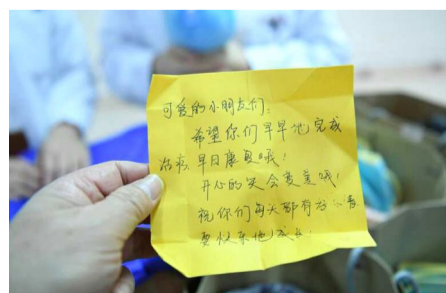 可爱的小朋友们:
希望你们早早地完成
治疗,早日康复哦!
开心的笑会变美哦!
祝你们每天都有好心情
要快乐地成长!